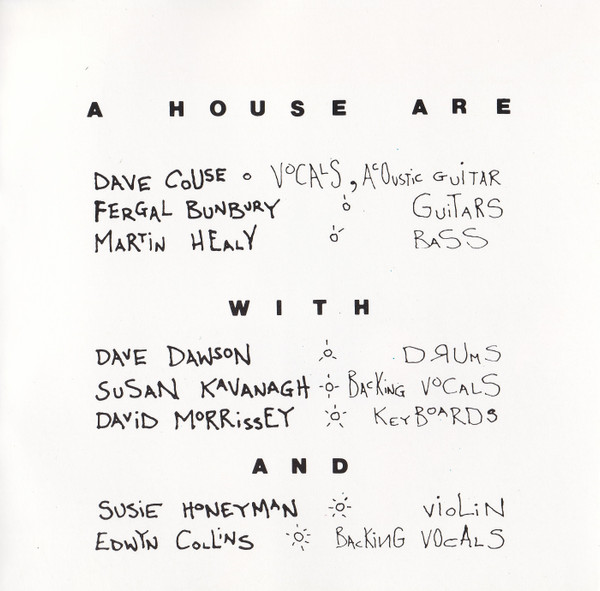 A HOUSE ARE
DAVE COUSE VOCALS, ACOUSTIC GUITAR
FERGAL BUNBURY GUITARS
MARTIN HEALY BASS
WITH
DAVE DAWSON DRUMS
SUSAN KAVANAGH BACKING VOCALS
DAVID MORRISSEY KEYBOARDS
AND
SUSIE HONEYMAN VIOLIN
EDWYN COLLINS BACKING VOCALS